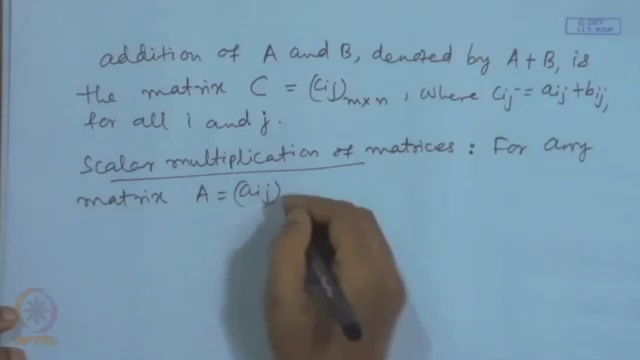 © CET
I.I.T. KGP
addition of A and B, denoted by A + B, is
the matrix C = (cij)m×n, where cij = aij + bij,
for all i and j.
Scalar multiplication of matrices : For any
matrix A = (aij)
NPTEL